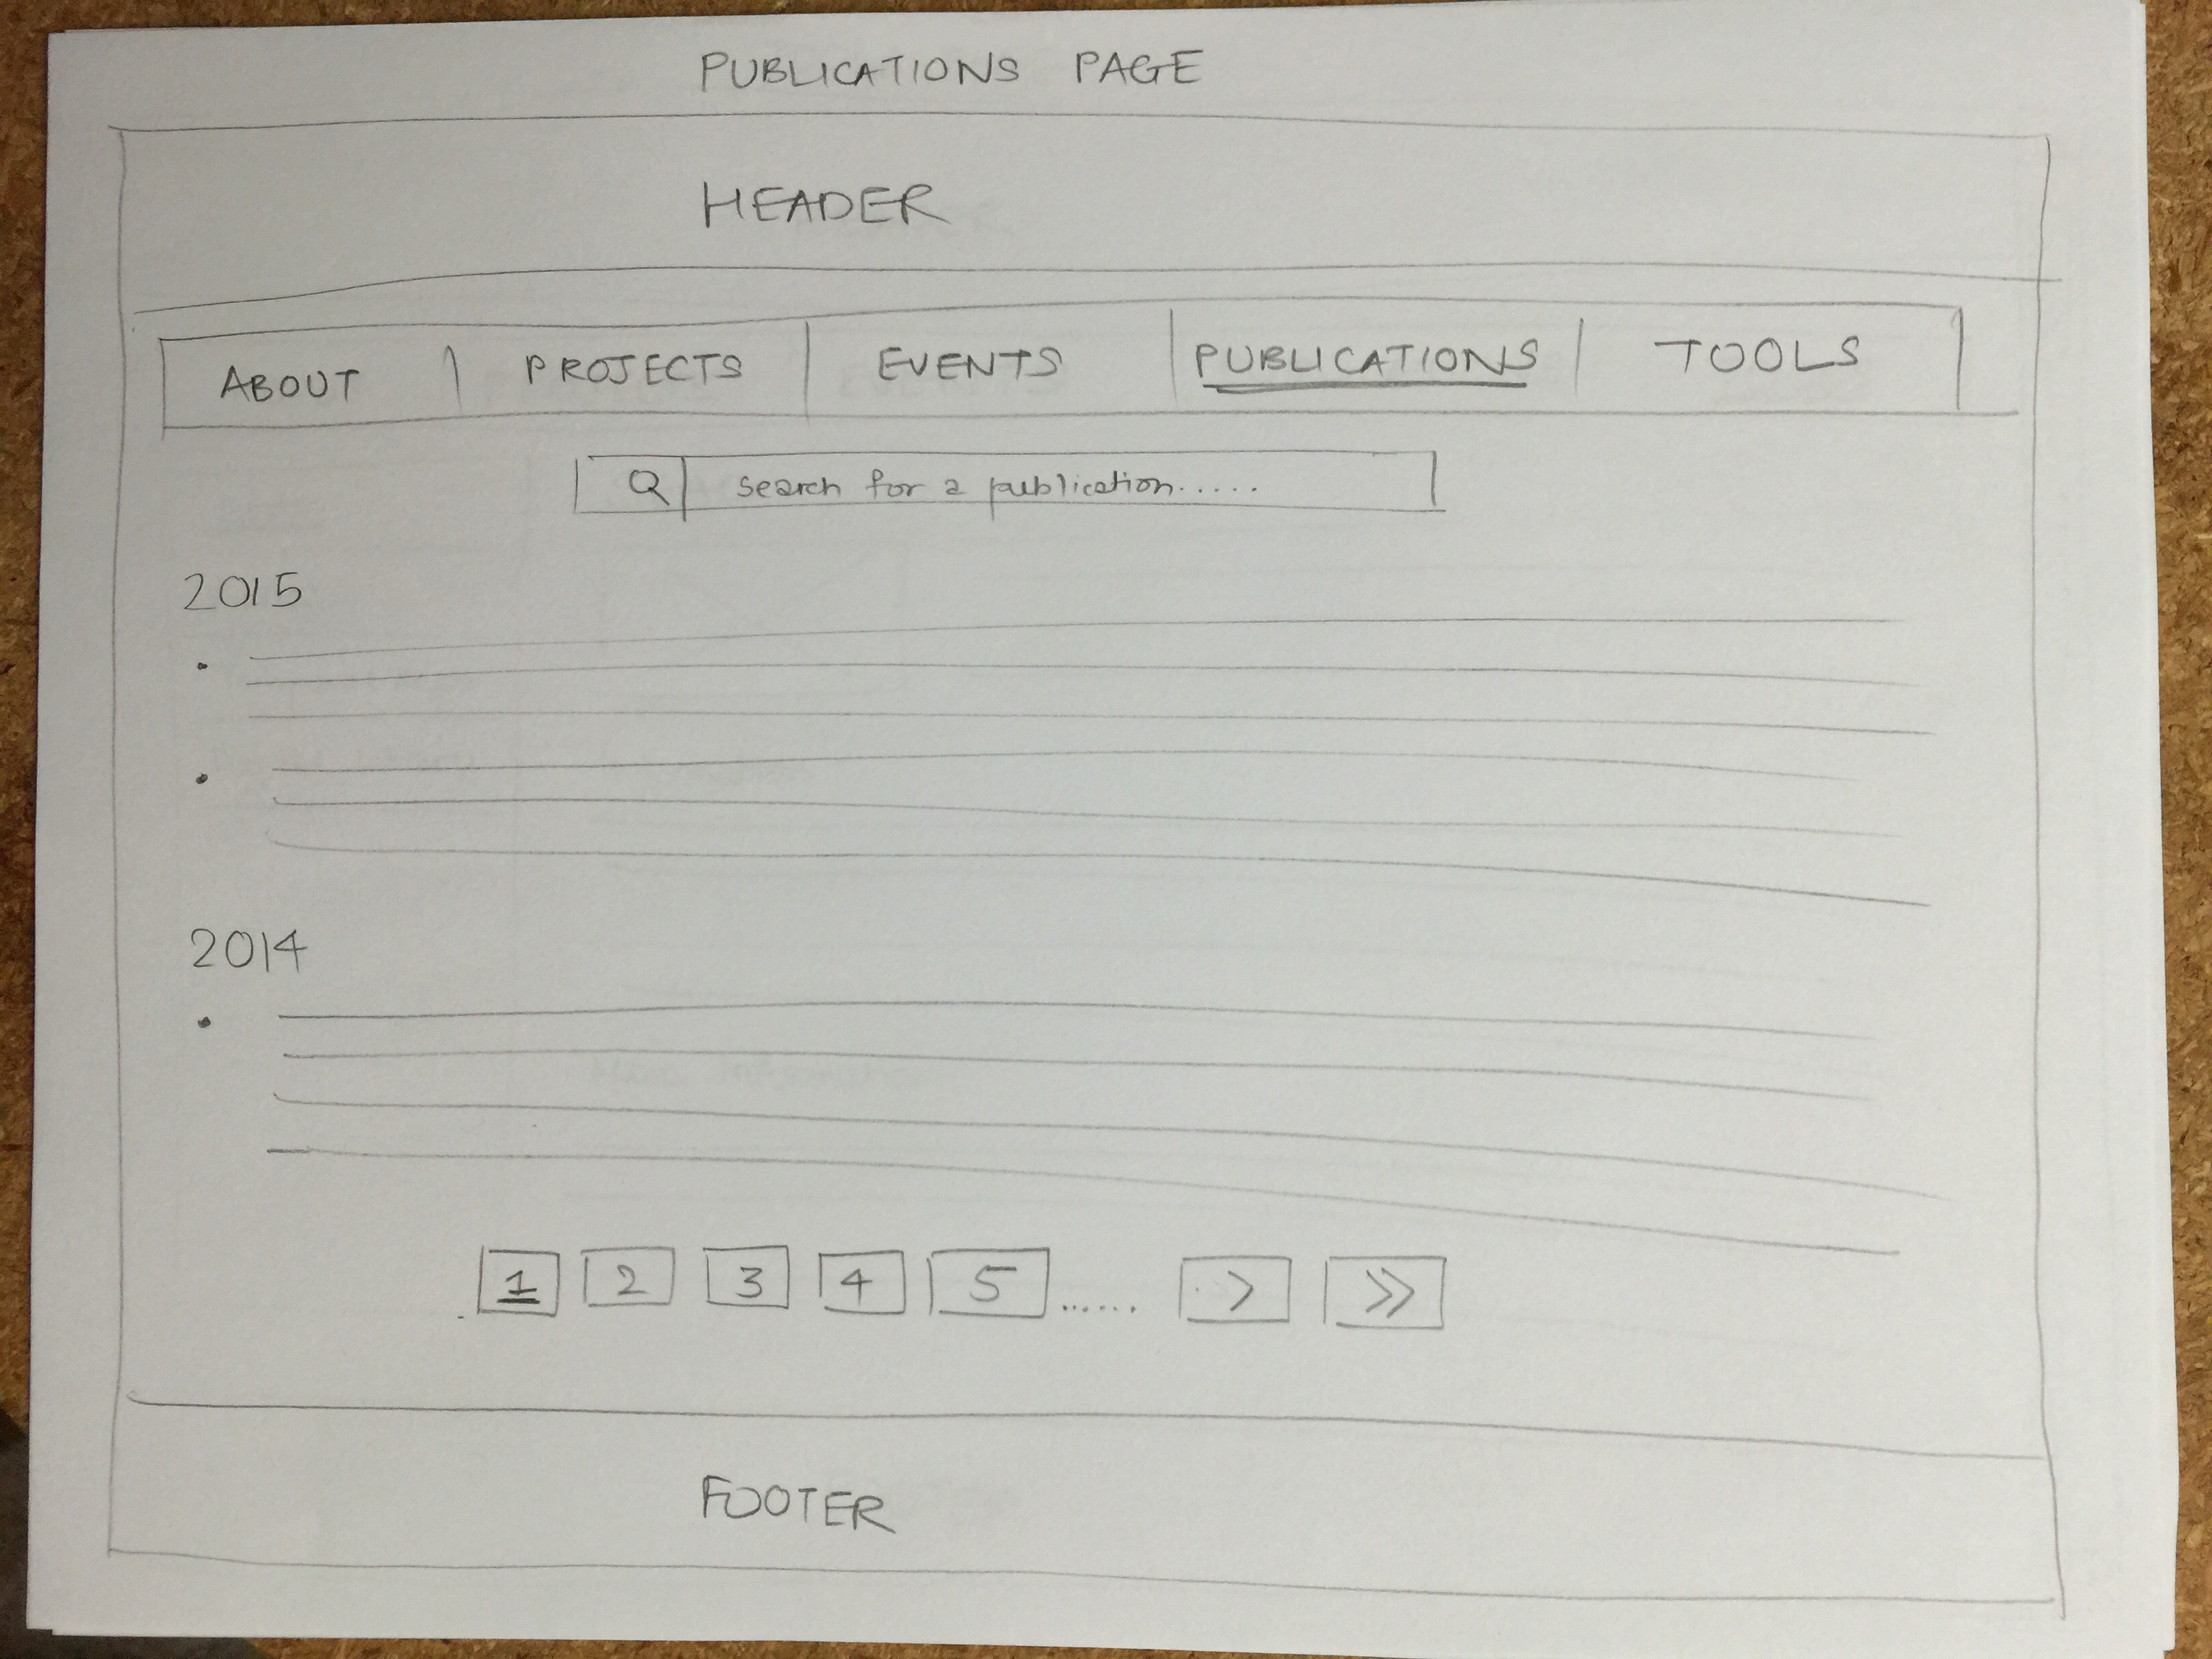 PUBLICATIONS PAGE
HEADER
ABOUT PROJECTS EVENTS PUBLICATIONS TOOLS
Search for a publication.....
2015
2014
1 2 3 4 5 ...... > >>
FOOTER